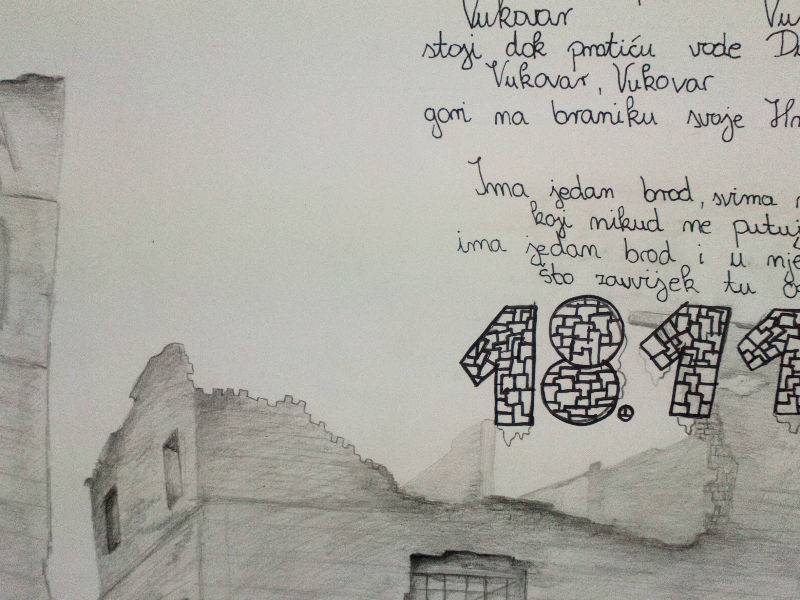 Vukovar
stoji dok protiču vode
Vukovar, Vukovar
gori na braniku svoje
Ima jedan brod, svima
koji nikud ne
ima jedan brod i u
što zauvijek tu
18.11